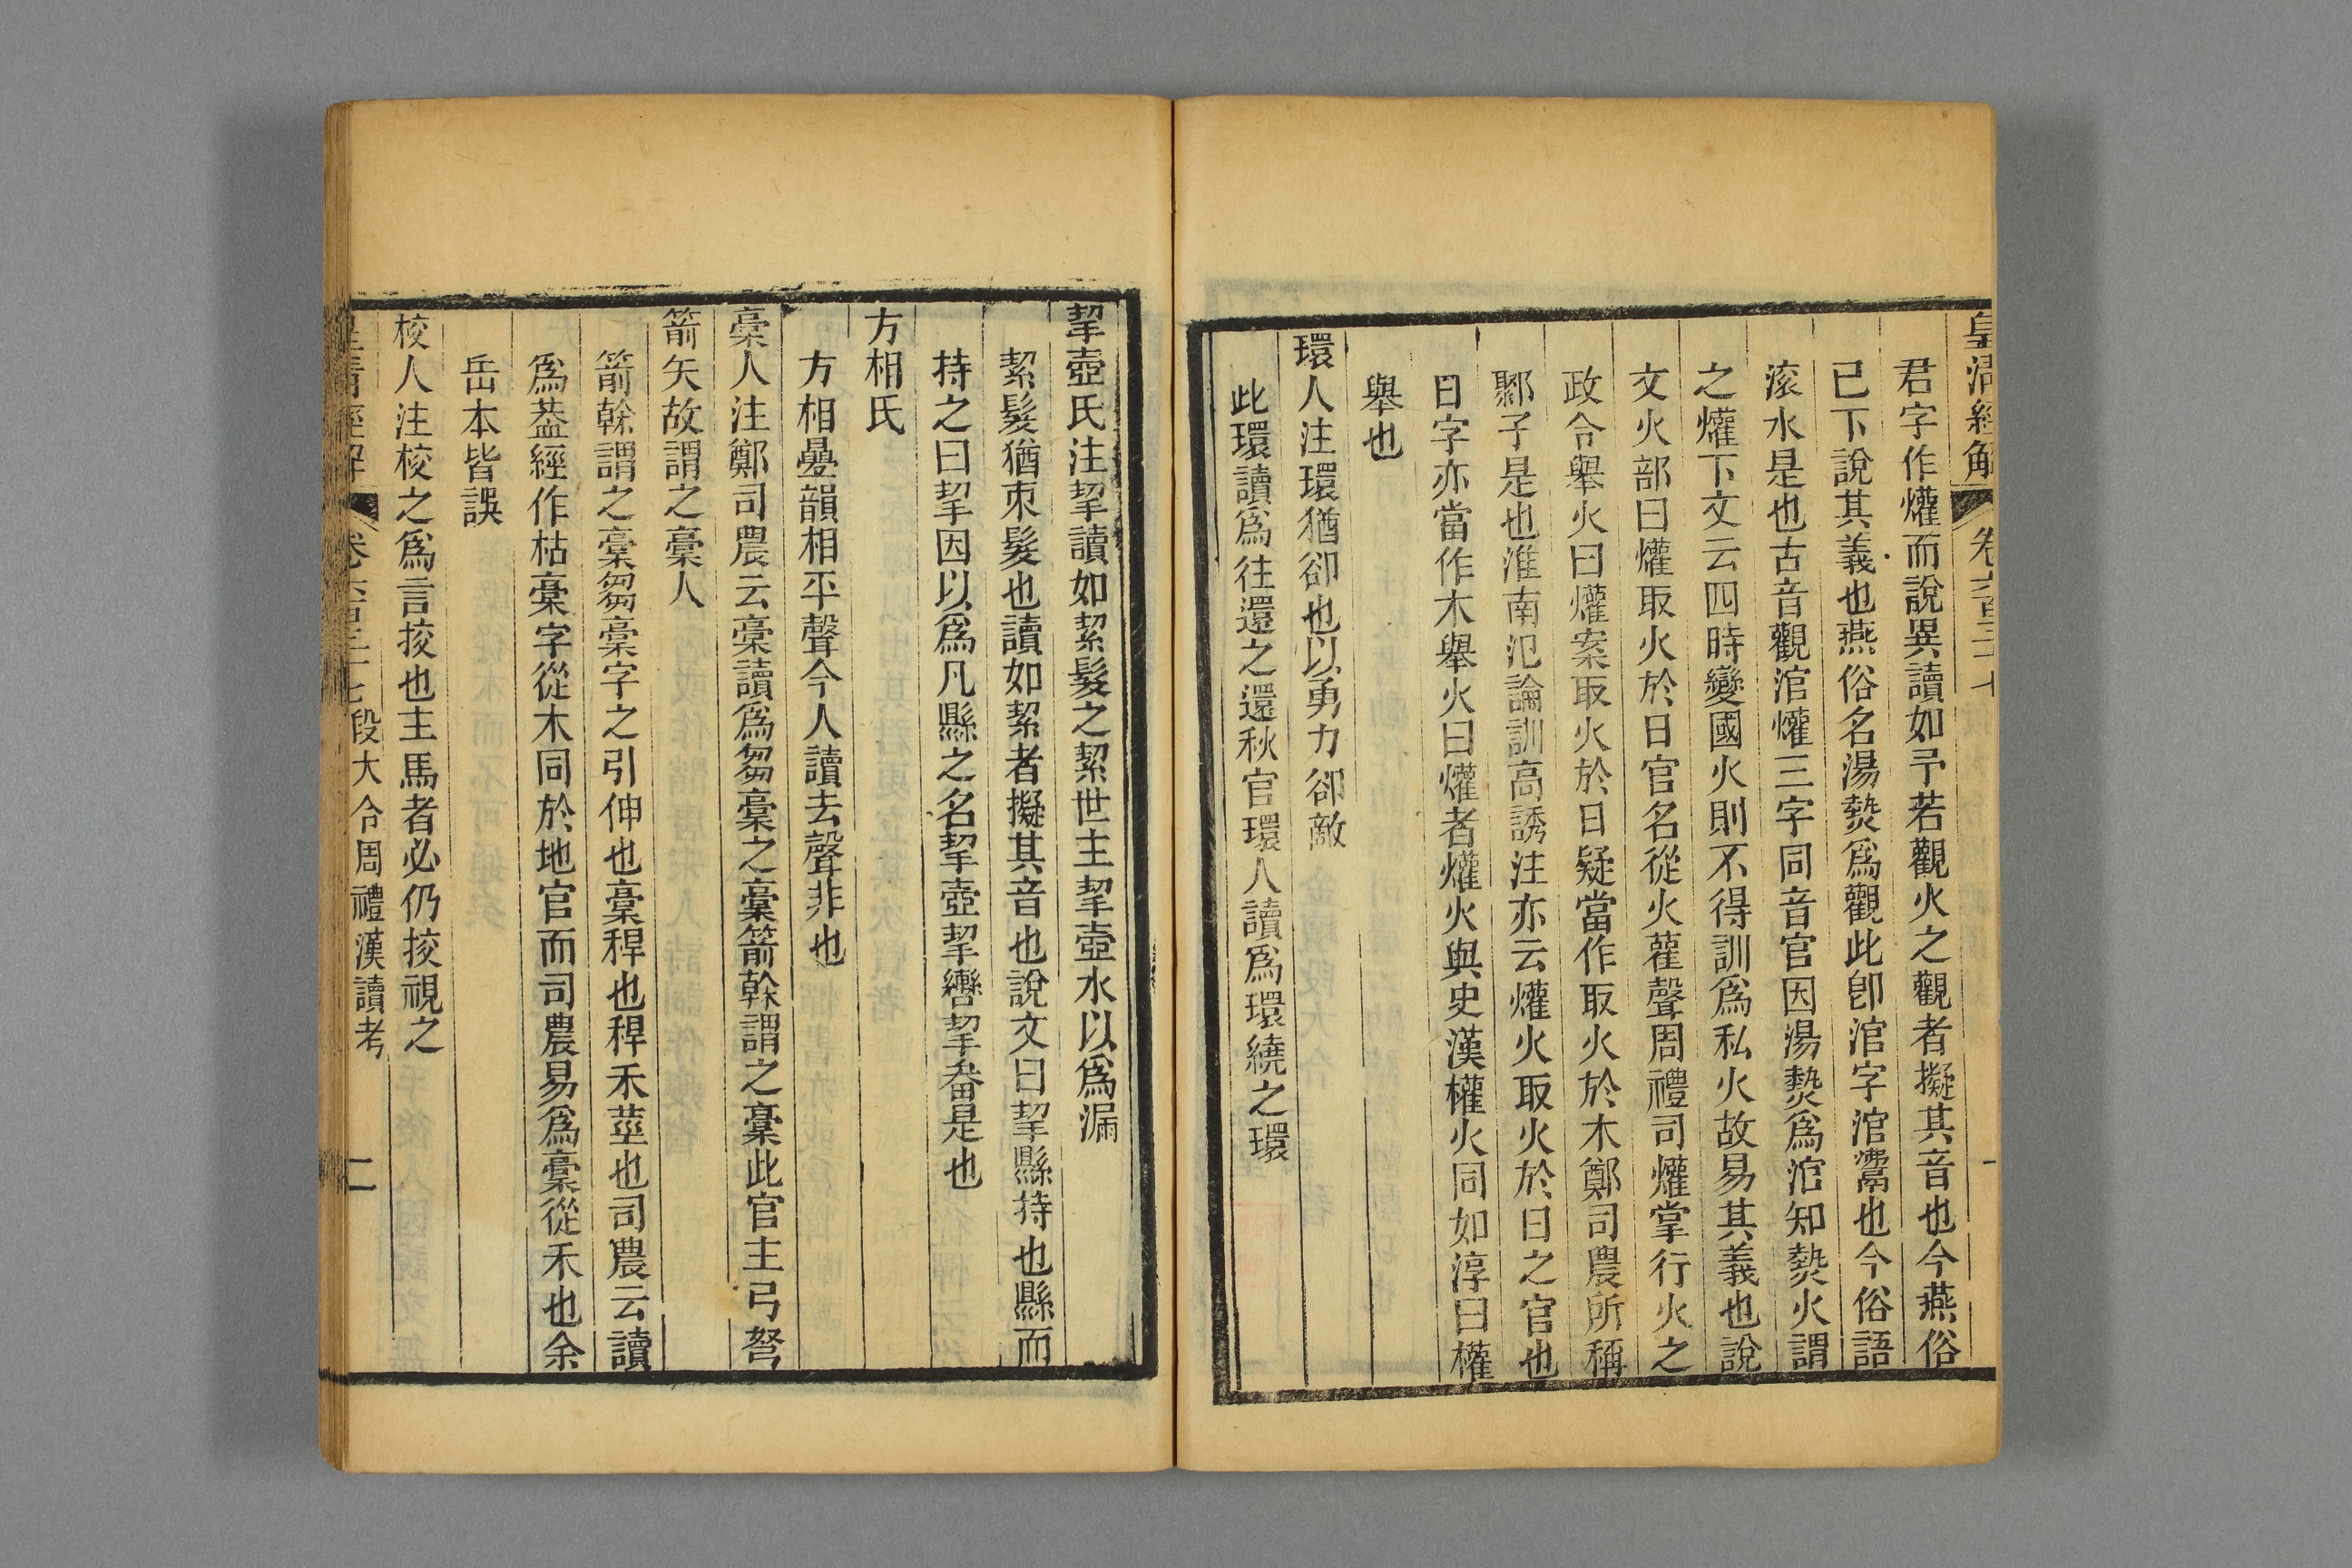 皇清經解 卷六百三十七 一
君字作爟而說異讀如予若觀火之觀者擬其音也今燕俗
已下說其義也燕俗名湯熱爲觀此卽涫字涫鬻也今俗語
滚水是也古音觀涫爟三字同音官因湯熱爲涫知熱火謂
之爟下文云四時變國火則不得訓爲私火故易其義也說
文火部曰爟取火於日官名從火雚聲周禮司爟掌行火之
政令舉火曰爟案取火於日疑當作取火於木鄭司農所稱
鄹子是也淮南氾論訓高誘注亦云爟火取火於日之官也
日字亦當作木舉火曰爟者爟火與史漢權火同如淳曰權
舉也
環人注環猶卻也以勇力卻敵
此環讀爲往還之還秋官環人讀爲環繞之環
挈壺氏注挈讀如絜髮之絜世主挈壺水以爲漏
絜髮猶朿髮也讀如絜者擬其音也說文曰挈縣持也縣而
持之曰挈因以爲凡縣之名挈壺挈轡挈畚是也
方相氏
方相疊韻相平聲今人讀去聲非也
槀人注鄭司農云槀讀爲芻槀之槀箭幹謂之槀此官主弓弩
箭矢故謂之槀人
箭幹謂之槀芻槀字之引伸也槀稈也稈禾莖也司農云讀
爲葢經作枯槀字從木同於地官而司農易爲稾從禾也余
岳本皆誤
校人注校之爲言挍也主馬者必仍挍視之
皇清經解 卷六百三十七段大令周禮漢讀考 二